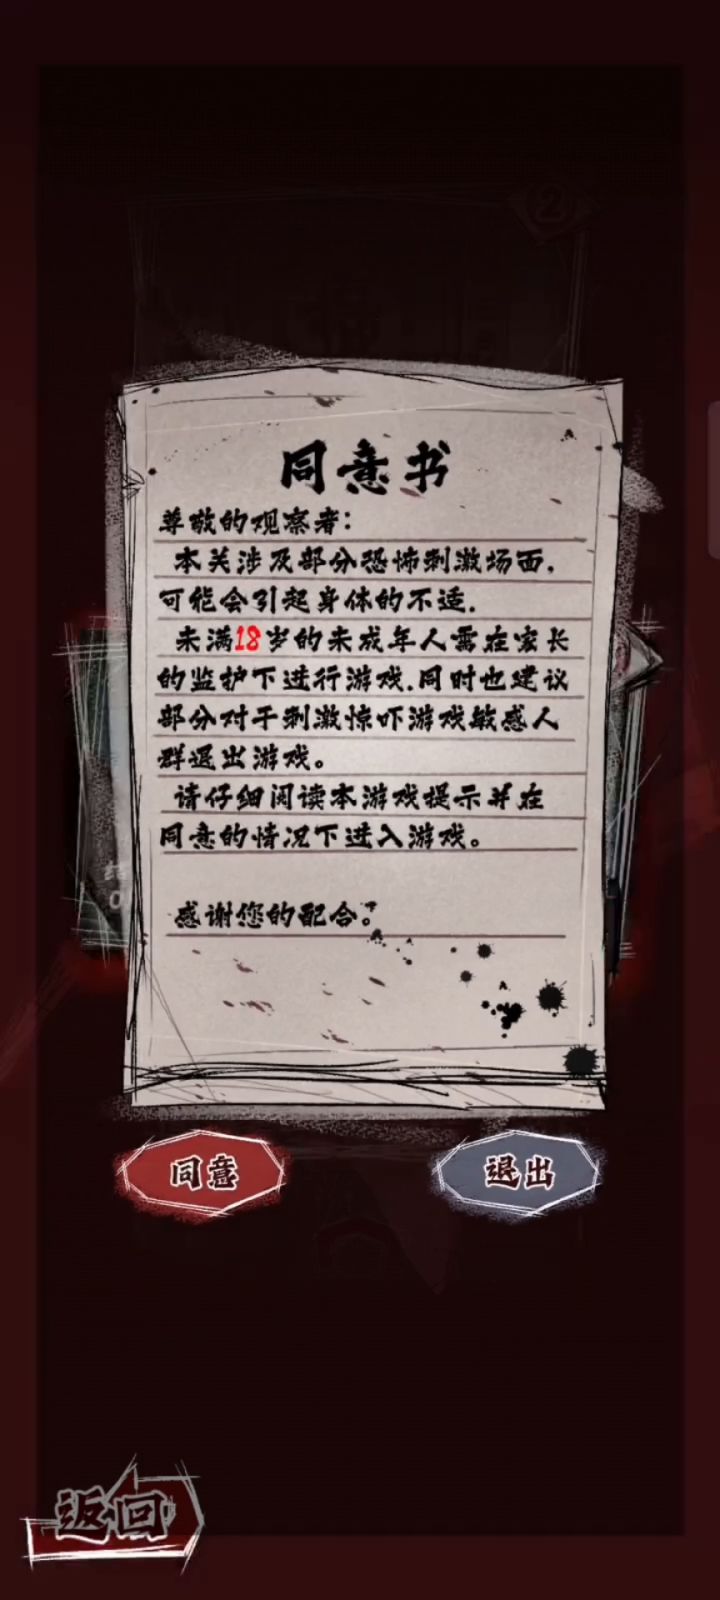 ②
同意书
尊敬的观察者：
本关涉及部分恐怖刺激场面，
可能会引起身体的不适.
未满18岁的未成年人需在家长
的监护下进行游戏.同时也建议
部分对于刺激惊吓游戏敏感人
群退出游戏。
请仔细阅读本游戏提示并在
同意的情况下进入游戏。
感谢您的配合。
同意
退出
返回